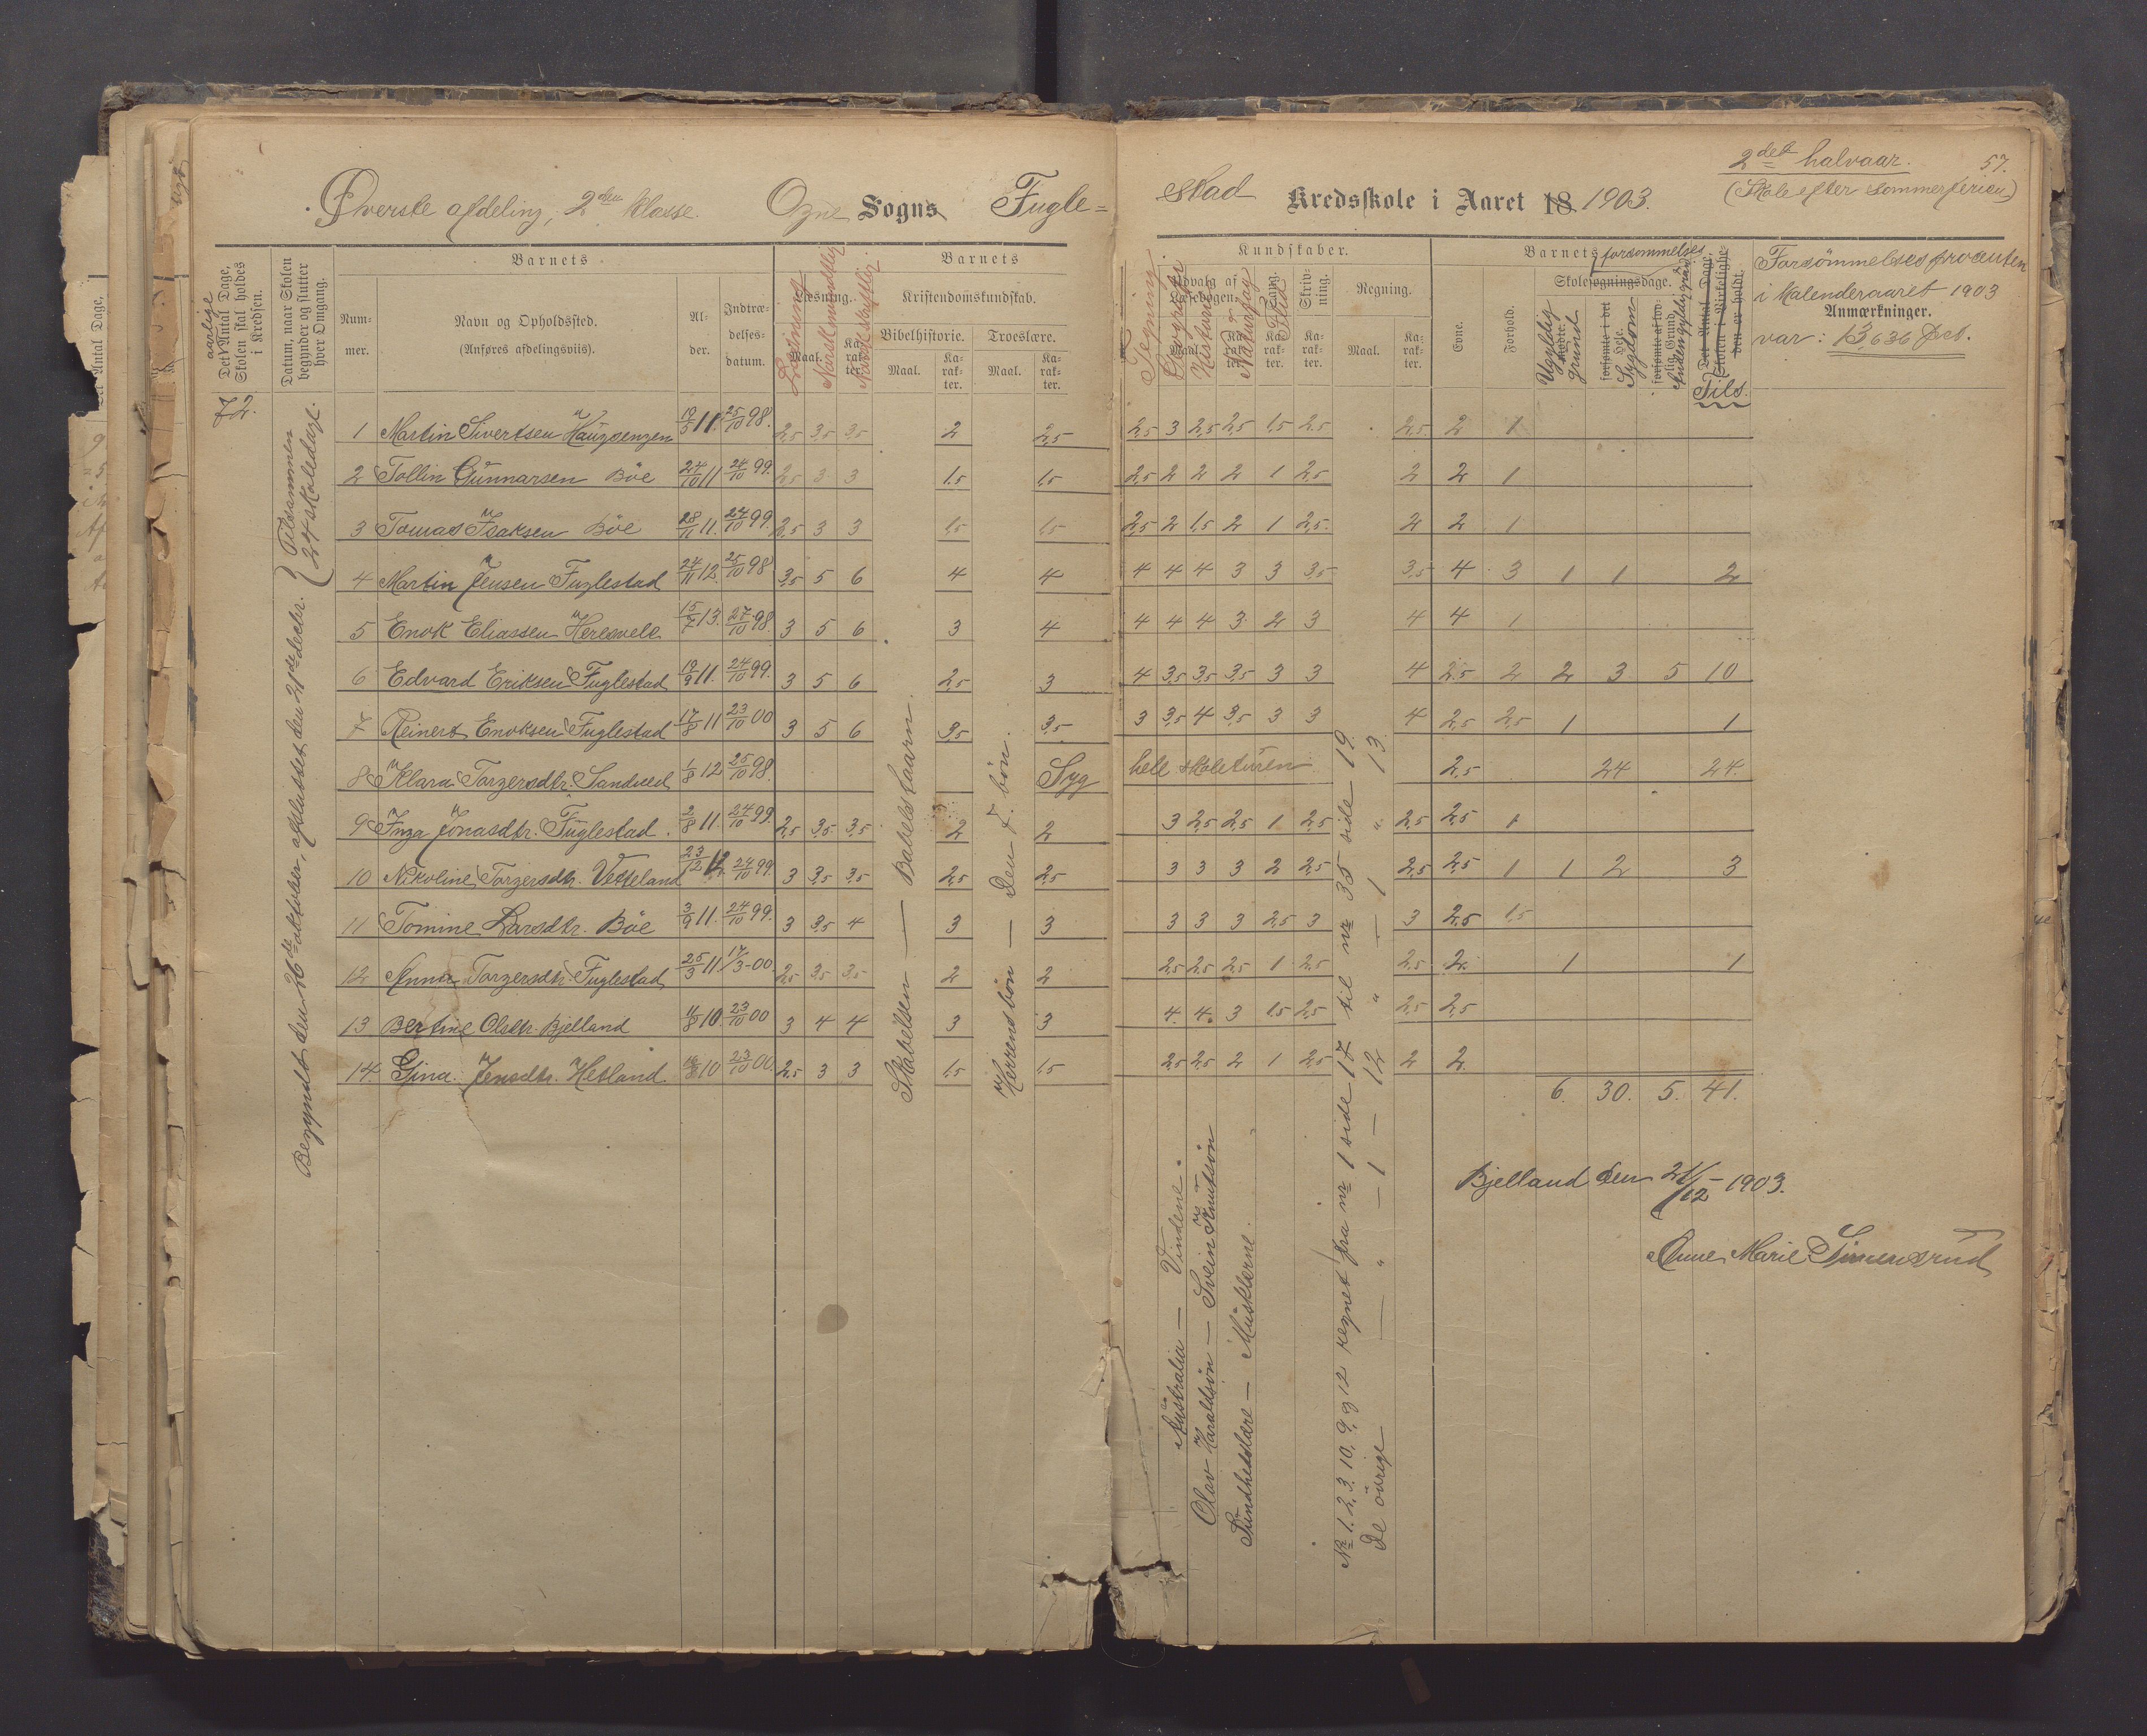 2det halvaar. 57.
(Skole efter sommerferien)
Øverste afdeling, 2den klasse. Ogne Sogns Fugle=
stad Kredsskole i Aaret 18 1903.
aarlige
Det Antal Dage,
Skolen skal holdes
i Kredsen.
72.
Datum, naar Skolen
begynder og slutter
hver Omgang.
Begyndt den 26de oktober, afsluttet den 21de decbr. Tilsammen
24 skoledage.
Barnets
Num-
mer.
Navn og Opholdssted.
(Anføres afdelingsviis).
Al-
der.
Indtræ-
delses-
datum.
Læsning.
Maal.
Ka-
rak-
ter.
Læsning
Norsk mundtlig
Norsk skriftlig.
Barnets
Kristendomskundskab.
Bibelhistorie. Troeslære.
Maal. Ka-
rak-
ter. Maal. Ka-
rak-
ter.
Kundskaber.
Tegning.
Geografi
Historie
Naturfag
Flid
Udvalg af
Læsebogen.
Sang.
Skriv-
ning.
Regning.
Maal. Ka-
rak-
ter.
Barnets forsømmelser
Evne.
Forhold.
Skolesøgningsdage.
Ugyldig
grund
Sygdom
Anden gyldig grund
forsømte i det
Hele.
forsømte af lov-
lig Grund.
Det Antal Dage,
Skolen i Virkelighe-
den er holdt.
Tils.
Forsømmelsesprocenten
i kalenderaaret 1903
Anmærkninger.
var: 13,636 pct.
1 Martin Sivertsen Haugsengen 19/5 11. 25/10 98. 2,5 3,5 3,5 2 2,5 2,5 3 2,5 2,5 1,5 2,5 2,5 2 1
2 Tollin Gunnarsen Böe 24/10 11 24/10 99. 2,5 3 3 1,5 1,5 2,5 2 2 2 1 2,5 2 2 1
3 Tomas Isaksen Böe 28/11 11. 24/10 99. 2,5 3 3 1,5 1,5 2,5 2 1,5 2 1 2,5. 2 2 1
4 Martin Jensen Fuglestad 24/11 12. 25/10 98 3,5 5 6 4 4 4 4 4 3 3 3,5 3,5 4 3 1 1 2
5 Enok Eliassen Heresvele 15/7 13. 27/10 98. 3 5 6 3 4 4 4 4 3 2 3 4 4 1
6 Edvard Eriksen Fuglestad 19/9 11. 24/10 99. 3 5 6 2,5 3 4 3,5 3,5 3,5 3 3 4 2,5 2 2 3 5 10
7 Reinert Enoksen Fuglestad 17/8 11 23/10 00 3 5 6 3,5 3,5 3 3,5 4 3,5 3 3 4 2,5 2,5 1 1
8 Klara Torgersdtr. Sandved 1/8 12 25/10 98. Syg hele skoletüren 2,5 24 24.
9 Inga Jonasdtr. Fuglestad. 2/8 11. 24/10 99. 2,5 3,5 3,5 2 2 3 2,5 2,5 1 2,5 2,5 2,5 1
10 Nikoline Torgersdtr. Vetteland 23/12 12. 24/10 99. 3 3,5 3,5 2,5 2,5 3 3 3 2 2,5 2,5 2,5 1 1 2 3
11 Tomine Larsdtr. Böe 3/9 11. 24/10 99. 3 3,5 4 3 3 3 3 3 2,5 3 3 2,5 1,5
12 Anna Torgersdtr. Fuglestad 25/3 11. 17/3-00. 2,5 3,5 3,5 2 2 2,5 2,5 2,5 1 2,5 2,5 2. 1 1
13 Bertine Olsdtr. Bjelland 4/8 10. 23/10 00 3 4 4 3 3 4. 4. 3 1,5 2,5 2,5 2,5
14. Gina Jensdtr. Hetland 10 23/10 00. 2,5 3 3 1,5 1,5 2,5 2,5 2 1 2,5 2 2.
6. 30. 5. 41.
Skabelsen — Babelstaarn.
Herrens bön — Den 7. bön.
Australia — Vindene.
Olav Haraldsön — Svein Knutsön
Sundhedslære — Musklerne.
Nr. 1. 2. 3. 10, 9, og 12 regnet fra nr 1 side 17 til nr 35 side 19.
De övrige — " — 1 — 12 " — 1 " 13
Bjelland den 21/12 - 1903.
Anne Marie Simensrud